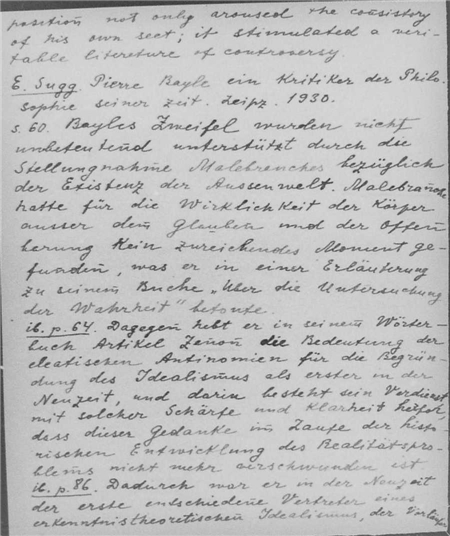 position not only aroused the consistory
of his own sect; it stimulated a veri-
table literature of controversy.
E. Sugg. Pierre Bayle ein Kritiker der Philo-
sophie seiner Zeit. Leipz. 1930.
S. 60. Bayles Zweifel wurden nicht
unbeteutend unterstützt durch die
Stellungnahme Malebranches bezüglich
der Existenz der Aussenwelt. Malebranche
hatte für die Wirklichkeit der Körper
ausser dem Glauben und der Offen
barung kein zureichendes Moment ge-
funden, was er in einer Erläuterung
zu seinem Buche „Über die Untersuchung
der Wahrheit" betonte.
ib. p. 64. Dagegen hebt er in seinem Wörter-
buch Artikel Zenon die Bedeutung der
eleatischen Antinomien für die Begrün-
dung des Idealismus als erster in der
Neuzeit, und darin besteht sein Verdienst,
mit solcher Schärfe und Klarheit hervor,
dass dieser Gedanke im Laufe der histo-
rischen Entwicklung des Realitätspro-
blems nicht mehr verschwunden ist
ib. p. 86. Dadurch war er in der Neuzeit
der erste entschiedene Vertreter eines
erkenntnistheoretischen Idealismus, der Vorläufer